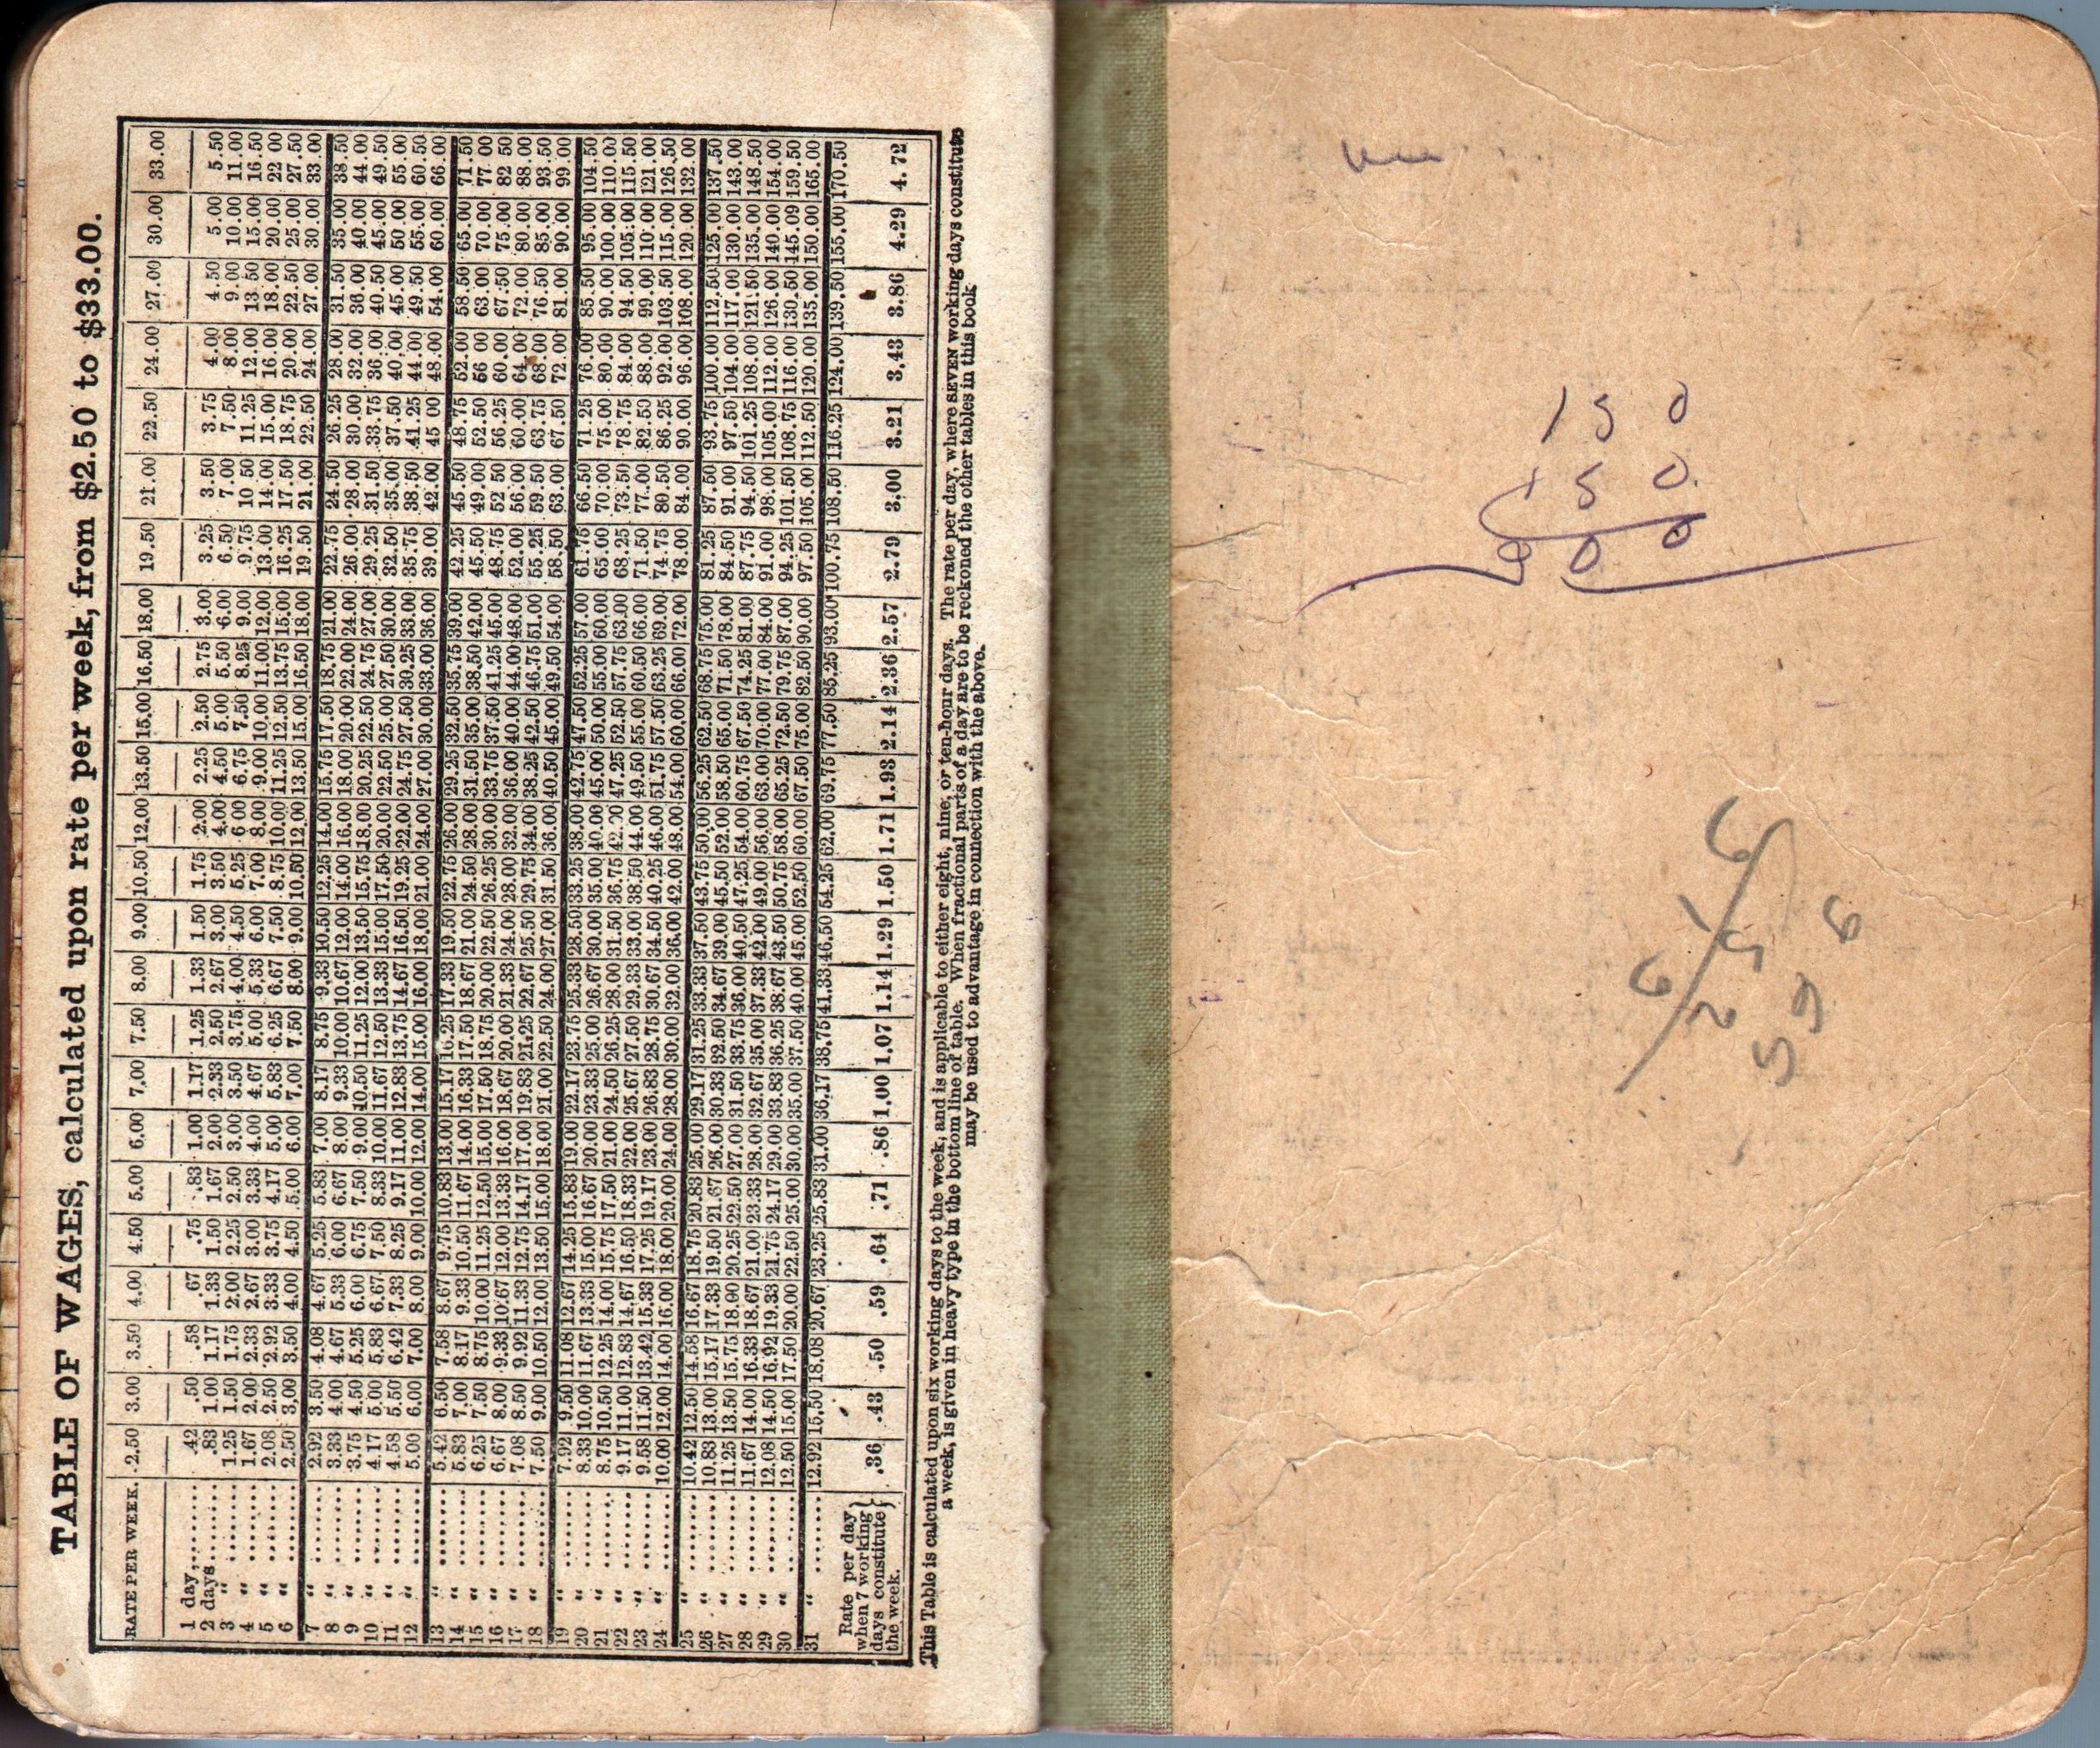 TABLE OF WAGES, calculated upon rate per week, from $2.50 to $33.00.
RATE PER WEEK. 2.50 3.00 3.50 4.00 4.50 5.00 6.00 7.00 7.50 8.00 9.00 10.50 12.00 13.50 15.00 16.50 18.00 19.50 21.00 22.50 24.00 27.00 30.00 33.00
1 day, .42 .50 .58 .67 .75 .83 1.00 1.17 1.25 1.33 1.50 1.75 2.00 2.25 2.50 2.75 3.00 3.25 3.50 3.75 4.00 4.50 5.00 5.50
2 days .83 1.00 1.17 1.33 1.50 1.67 2.00 2.33 2.50 2.67 3.00 3.50 4.00 4.50 5.00 5.50 6.00 6.50 7.00 7.50 8.00 9.00 10.00 11.00
3 " 1.25 1.50 1.75 2.00 2.25 2.50 3.00 3.50 3.75 4.00 4.50 5.25 6.00 6.75 7.50 8.25 9.00 9.75 10.50 11.25 12.00 13.50 15.00 16.50
4 " 1.67 2.00 2.33 2.67 3.00 3.33 4.00 4.67 5.00 5.33 6.00 7.00 8.00 9.00 10.00 11.00 12.00 13.00 14.00 15.00 16.00 18.00 20.00 22.00
5 " 2.08 2.50 2.92 3.33 3.75 4.17 5.00 5.83 6.25 6.67 7.50 8.75 10.00 11.25 12.50 13.75 15.00 16.25 17.50 18.75 20.00 22.50 25.00 27.50
6 " 2.50 3.00 3.50 4.00 4.50 5.00 6.00 7.00 7.50 8.00 9.00 10.50 12.00 13.50 15.00 16.50 18.00 19.50 21.00 22.50 24.00 27.00 30.00 33.00
7 " 2.92 3.50 4.08 4.67 5.25 5.83 7.00 8.17 8.75 9.33 10.50 12.25 14.00 15.75 17.50 18.75 21.00 22.75 24.50 26.25 28.00 31.50 35.00 38.50
8 " 3.33 4.00 4.67 5.33 6.00 6.67 8.00 9.33 10.00 10.67 12.00 14.00 16.00 18.00 20.00 22.00 24.00 26.00 28.00 30.00 32.00 36.00 40.00 44.00
9 " 3.75 4.50 5.25 6.00 6.75 7.50 9.00 10.50 11.25 12.00 13.50 15.75 18.00 20.25 22.50 24.75 27.00 29.25 31.50 33.75 36.00 40.50 45.00 49.50
10 " 4.17 5.00 5.83 6.67 7.50 8.33 10.00 11.67 12.50 13.33 15.00 17.50 20.00 22.50 25.00 27.50 30.00 32.50 35.00 37.50 40.00 45.00 50.00 55.00
11 " 4.58 5.50 6.42 7.33 8.25 9.17 11.00 12.83 13.75 14.67 16.50 19.25 22.00 24.75 27.50 30.25 33.00 35.75 38.50 41.25 44.00 49.50 55.00 60.50
12 " 5.00 6.00 7.00 8.00 9.00 10.00 12.00 14.00 15.00 16.00 18.00 21.00 24.00 27.00 30.00 33.00 36.00 39.00 42.00 45.00 48.00 54.00 60.00 66.00
13 " 5.42 6.50 7.58 8.67 9.75 10.83 13.00 15.17 16.25 17.33 19.50 22.75 26.00 29.25 32.50 35.75 39.00 42.25 45.50 48.75 52.00 58.50 65.00 71.50
14 " 5.83 7.00 8.17 9.33 10.50 11.67 14.00 16.33 17.50 18.67 21.00 24.50 28.00 31.50 35.00 38.50 42.00 45.50 49.00 52.50 56.00 63.00 70.00 77.00
15 " 6.25 7.50 8.75 10.00 11.25 12.50 15.00 17.50 18.75 20.00 22.50 26.25 30.00 33.75 37.50 41.25 45.00 48.75 52.50 56.25 60.00 67.50 75.00 82.50
16 " 6.67 8.00 9.33 10.67 12.00 13.33 16.00 18.67 20.00 21.33 24.00 28.00 32.00 36.00 40.00 44.00 48.00 52.00 56.00 60.00 64.00 72.00 80.00 88.00
17 " 7.08 8.50 9.92 11.33 12.75 14.17 17.00 19.83 21.25 22.67 25.50 29.75 34.00 38.25 42.50 46.75 51.00 55.25 59.50 63.75 68.00 76.50 85.00 93.50
18 " 7.50 9.00 10.50 12.00 13.50 15.00 18.00 21.00 22.50 24.00 27.00 31.50 36.00 40.50 45.00 49.50 54.00 58.50 63.00 67.50 72.00 81.00 90.00 99.00
19 " 7.92 9.50 11.08 12.67 14.25 15.83 19.00 22.17 23.75 25.33 28.50 33.25 38.00 42.75 47.50 52.25 57.00 61.75 66.50 71.25 76.00 85.50 95.00 104.50
20 " 8.33 10.00 11.67 13.33 15.00 16.67 20.00 23.33 25.00 26.67 30.00 35.00 40.00 45.00 50.00 55.00 60.00 65.00 70.00 75.00 80.00 90.00 100.00 110.00
21 " 8.75 10.50 12.25 14.00 15.75 17.50 21.00 24.50 26.25 28.00 31.50 36.75 42.00 47.25 52.50 57.75 63.00 68.25 73.50 78.75 84.00 94.50 105.00 115.50
22 " 9.17 11.00 12.83 14.67 16.50 18.33 22.00 25.67 27.50 29.33 33.00 38.50 44.00 49.50 55.00 60.50 66.00 71.50 77.00 82.50 88.00 99.00 110.00 121.00
23 " 9.58 11.50 13.42 15.33 17.25 19.17 23.00 26.83 28.75 30.67 34.50 40.25 46.00 51.75 57.50 63.25 69.00 74.75 80.50 86.25 92.00 103.50 115.00 126.50
24 " 10.00 12.00 14.00 16.00 18.00 20.00 24.00 28.00 30.00 32.00 36.00 42.00 48.00 54.00 60.00 66.00 72.00 78.00 84.00 90.00 96.00 108.00 120.00 132.00
25 " 10.42 12.50 14.58 16.67 18.75 20.83 25.00 29.17 31.25 33.33 37.50 43.75 50.00 56.25 62.50 68.75 75.00 81.25 87.50 93.75 100.00 112.50 125.00 137.50
26 " 10.83 13.00 15.17 17.33 19.50 21.67 26.00 30.33 32.50 34.67 39.00 45.50 52.00 58.50 65.00 71.50 78.00 84.50 91.00 97.50 104.00 117.00 130.00 143.00
27 " 11.25 13.50 15.75 18.00 20.25 22.50 27.00 31.50 33.75 36.00 40.50 47.25 54.00 60.75 67.50 74.25 81.00 87.75 94.50 101.25 108.00 121.50 135.00 148.50
28 " 11.67 14.00 16.33 18.67 21.00 23.33 28.00 32.67 35.00 37.33 42.00 49.00 56.00 63.00 70.00 77.00 84.00 91.00 98.00 105.00 112.00 126.00 140.00 154.00
29 " 12.08 14.50 16.92 19.33 21.75 24.17 29.00 33.83 36.25 38.67 43.50 50.75 58.00 65.25 72.50 79.75 87.00 94.25 101.50 108.75 116.00 130.50 145.09 159.50
30 " 12.50 15.00 17.50 20.00 22.50 25.00 30.00 35.00 37.50 40.00 45.00 52.50 60.00 67.50 75.00 82.50 90.00 97.50 105.00 112.50 120.00 135.00 150.00 165.00
31 " 12.92 15.50 18.08 20.67 23.25 25.83 31.00 36.17 38.75 41.33 46.50 54.25 62.00 69.75 77.50 85.25 93.00 100.75 108.50 116.25 124.00 139.50 155.00 170.50
Rate per day when 7 working days constitute the week. .36 .43 .50 .59 .64 .71 .86 1.00 1.07 1.14 1.29 1.50 1.71 1.93 2.14 2.36 2.57 2.79 3.00 3.21 3.43 3.86 4.29 4.72
This Table is calculated upon six working days to the week, and is applicable to either eight, nine, or ten-hour days. The rate per day, where SEVEN working days constitute
a week, is given in heavy type in the bottom line of table. When fractional parts of a day are to be reckoned the other tables in this book
may be used to advantage in connection with the above.
150
150
300